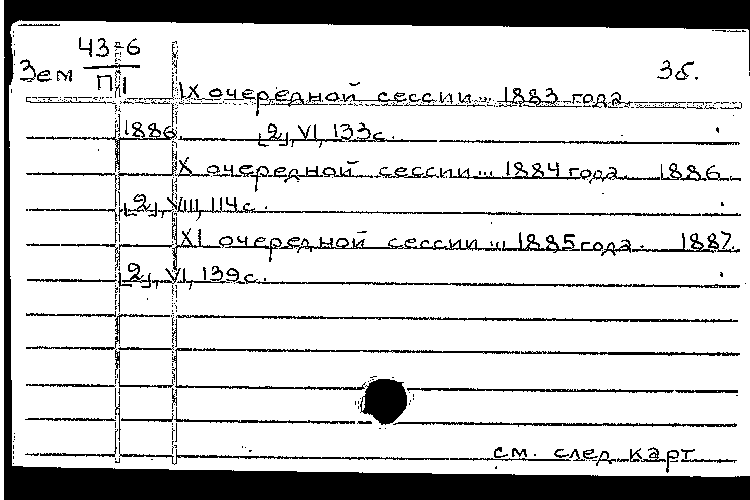 43-6
Зем П1 3б.
IX очередной сессии... 1883 года.
1886. [2], VI, 133 с.
X очередной сессии... 1884 года. 1886.
[2], VIII, 114 с.
XI очередной сессии... 1885 года. 1887.
[2], VI, 139 с.
см. след карт